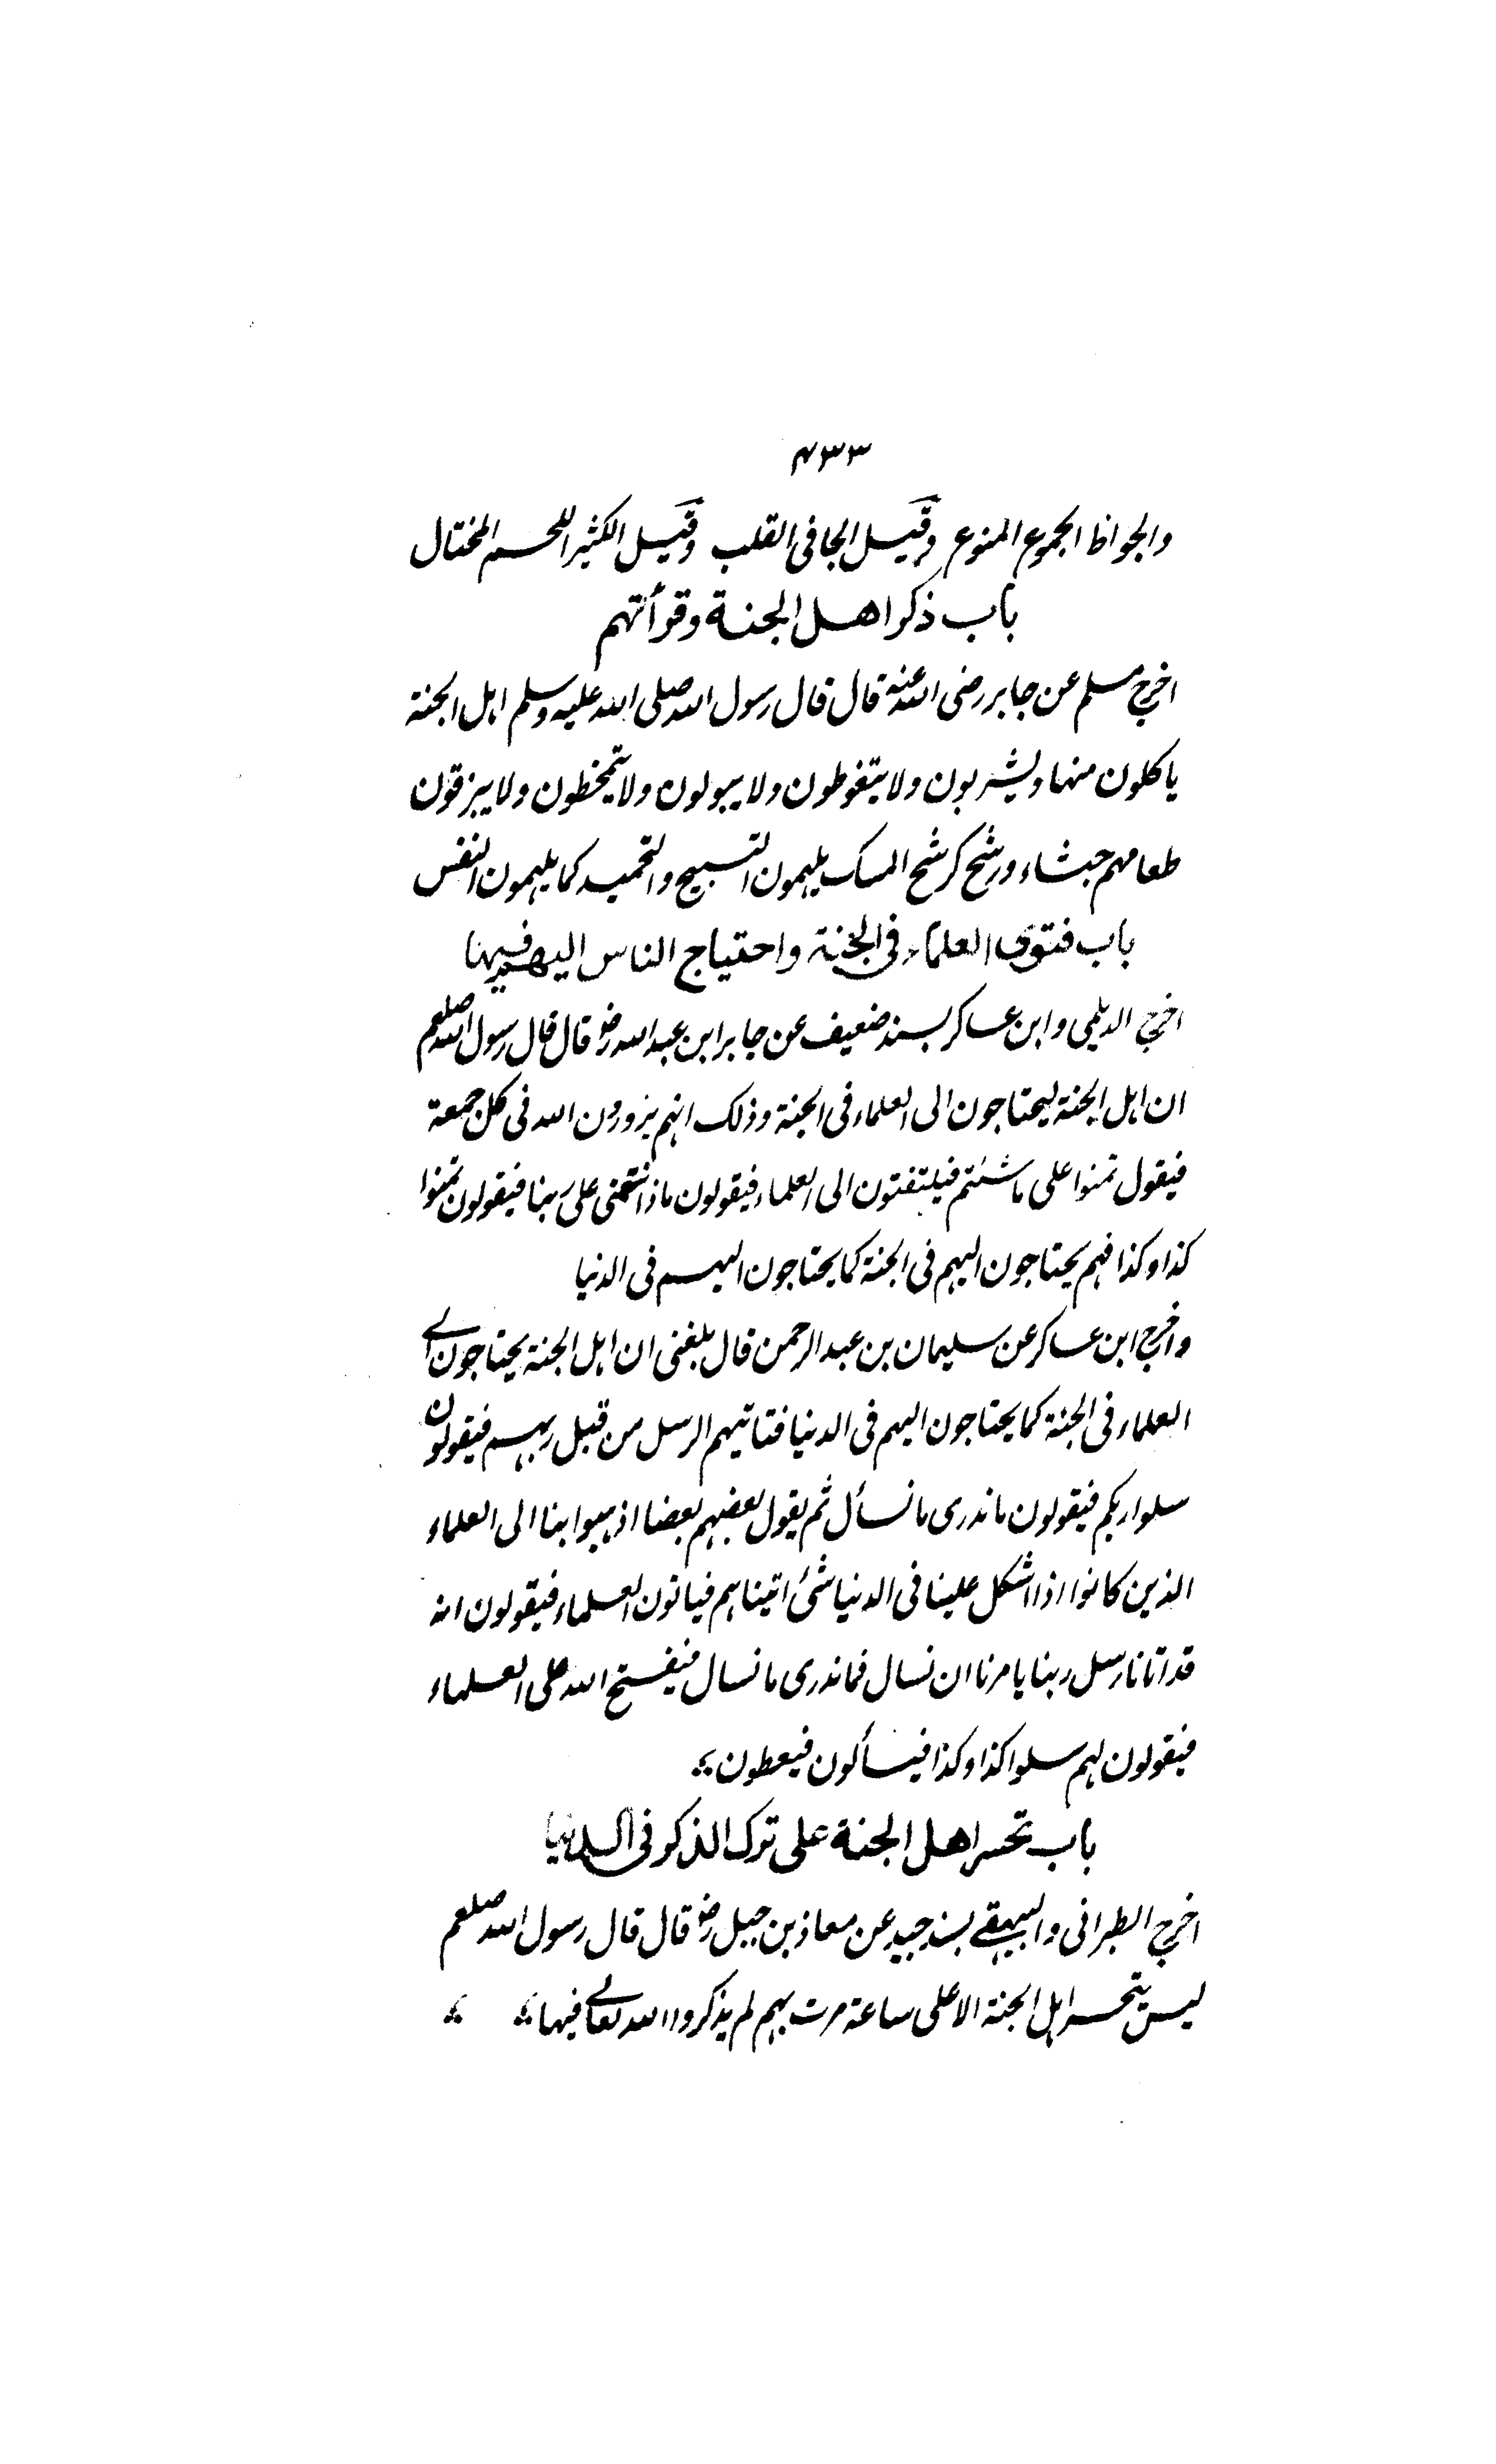 ۷۳۳
والجواظ الجموع المنوع وقیل الجافی القلب وقیل الکثیر اللحم المختال
باب ذکر اهل الجنة وقرأتهم
اخرج مسلم عن جابر رضی الله عنه قال قال رسول الله صلی الله علیه وسلم اهل الجنة
یاکلون منها ویشربون ولا یتغوطون ولا یبولون ولا یتمخطون ولا یبزقون
طعامهم جشاء ورشح کرشح المسک یلهمون التسبیح والتحمید کما یلهمون النفس
باب فتوی العلماء فی الجنة واحتیاج الناس الیهم فیها
اخرج الدیلمی وابن عساکر بسند ضعیف عن جابر ابن عبد الله رض قال قال رسول الله صلعم
ان اهل الجنة لیحتاجون الی العلماء فی الجنة وذلک انهم یزورون الله فی کل جمعة
فیقول تمنوا علی ما شئتم فیلتفتون الی العلماء فیقولون ماذا نتمنی علی ربنا فیقولون تمنوا
کذا وکذا فهم یحتاجون الیهم فی الجنة کما یحتاجون الیهم فی الدنیا
واخرج ابن عساکر عن سلیمان بن عبد الرحمن قال بلغنی ان اهل الجنة یحتاجون الی
العلماء فی الجنة کما یحتاجون الیهم فی الدنیا فتاتیهم الرسل من قبل ربهم فیقولون
سلوا ربکم فیقولون ما ندری ما نسأل ثم یقول بعضهم بعضا اذهبوا بنا الی العلماء
الذین کانوا اذا اشکل علینا فی الدنیا شئ اتیناهم فیاتون العلماء فیقولون انه
قد اتانا رسل ربنا یامرنا ان نسال فما ندری ما نسال فیفتح الله علی العلماء
فیقولون لهم سلوا کذا وکذا فیسألون فیعطون
باب تحسر اهل الجنة علی ترک الذکر فی الدنیا
اخرج الطبرانی والبیهقی بسند جید عن معاذ بن جبل رض قال قال رسول الله صلعم
لیس یتحسر اهل الجنة الا علی ساعة مرت بهم لم یذکروا الله تعالی فیها